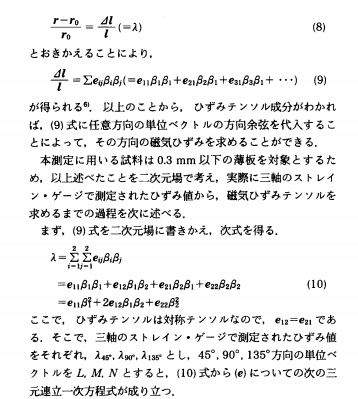 (r−r₀)/r₀ = Δl/l (=λ) (8)
とおきかえることにより，
Δl/l = Σeᵢⱼβᵢβⱼ(=e₁₁β₁β₁+e₂₁β₂β₁+e₃₁β₃β₁+ ···) (9)
が得られる⁶⁾． 以上のことから， ひずみテンソル成分がわかれ
ば，(9)式に任意方向の単位ベクトルの方向余弦を代入するこ
とによって，その方向の磁気ひずみを求めることができる．
本測定に用いる試料は0.3 mm 以下の薄板を対象とするた
め，以上述べたことを二次元場で考え，実際に三軸のストレイ
ン・ゲージで測定されたひずみ値から，磁気ひずみテンソルを
求めるまでの過程を次に述べる．
まず，(9)式を二次元場に書きかえ，次式を得る．
λ=Σ²ᵢ₌₁Σ²ⱼ₌₁eᵢⱼβᵢβⱼ
=e₁₁β₁β₁+e₁₂β₁β₂+e₂₁β₂β₁+e₂₂β₂β₂ (10)
=e₁₁β₁²+2e₁₂β₁β₂+e₂₂β₂²
ここで， ひずみテンソルは対称テンソルなので，e₁₂=e₂₁であ
る． そこで，三軸のストレイン・ゲージで測定されたひずみ値
をそれぞれ，λ₄₅°, λ₉₀°, λ₁₃₅°とし，45°, 90°, 135°方向の単位ベ
クトルを L, M, N とすると，(10)式から(e)についての次の三
元連立一次方程式が成り立つ．